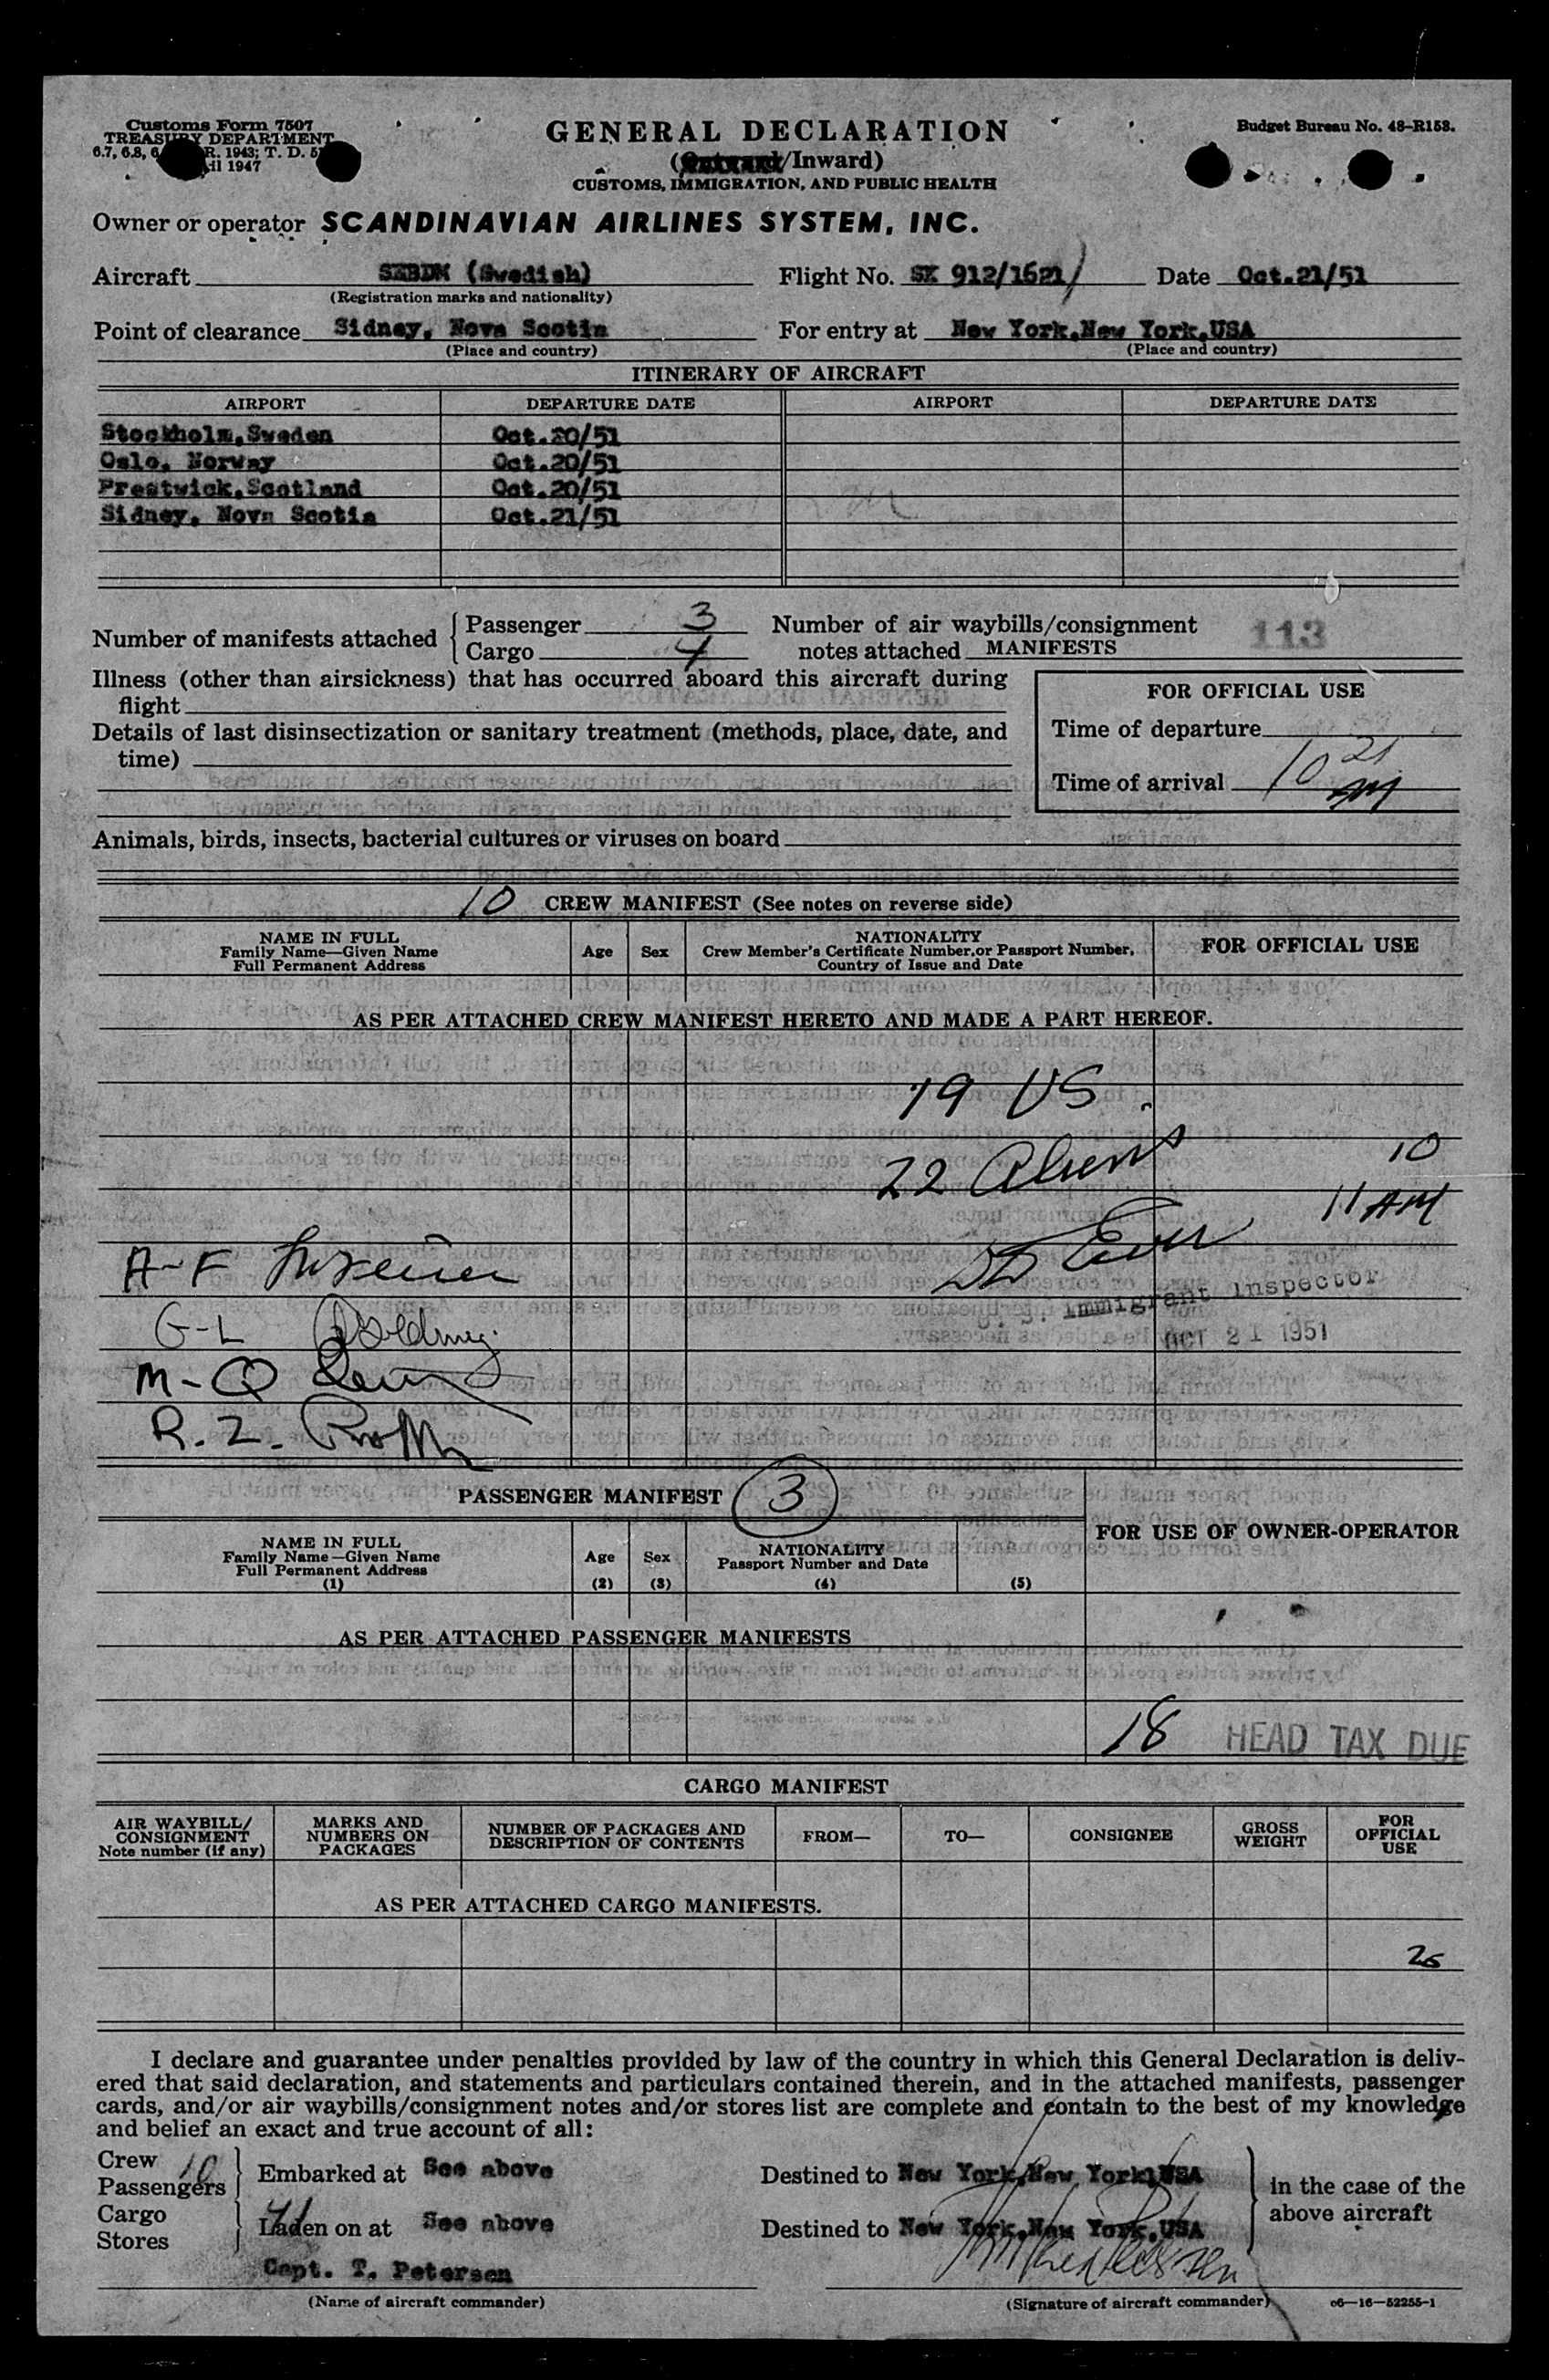 Customs Form 7507
TREASURY DEPARTMENT
6.7, 6.8, R. 1943; T. D.
1947
GENERAL DECLARATION
(Outward/Inward)
CUSTOMS, IMMIGRATION, AND PUBLIC HEALTH
Budget Bureau No. 48-R153.
Owner or operator SCANDINAVIAN AIRLINES SYSTEM, INC.
Aircraft SEBDM (Swedish) Flight No. SK 912/1621 Date Oct.21/51
(Registration marks and nationality)
Point of clearance Sidney, Nova Scotia For entry at New York,New York,USA
(Place and country) (Place and country)
ITINERARY OF AIRCRAFT
AIRPORT DEPARTURE DATE AIRPORT DEPARTURE DATE
Stockholm,Sweden Oct.20/51
Oslo, Norway Oct.20/51
Prestwick,Scotland Oct.20/51
Sidney, Nova Scotia Oct.21/51
Number of manifests attached Passenger 3 Cargo 4
Number of air waybills/consignment notes attached MANIFESTS 113
Illness (other than airsickness) that has occurred aboard this aircraft during
flight
Details of last disinsectization or sanitary treatment (methods, place, date, and
time)
FOR OFFICIAL USE
Time of departure
Time of arrival 10 21 AM
Animals, birds, insects, bacterial cultures or viruses on board
10 CREW MANIFEST (See notes on reverse side)
NAME IN FULL
Family Name—Given Name
Full Permanent Address
Age Sex
NATIONALITY
Crew Member's Certificate Number, or Passport Number,
Country of Issue and Date
FOR OFFICIAL USE
AS PER ATTACHED CREW MANIFEST HERETO AND MADE A PART HEREOF.
19 US
22 Aliens 10
11 AM
A-F
U. S. Immigrant Inspector
G-L
OCT 21 1951
M-Q
R.Z.
PASSENGER MANIFEST 3
NAME IN FULL
Family Name—Given Name
Full Permanent Address
(1)
Age
(2)
Sex
(3)
NATIONALITY
Passport Number and Date
(4) (5)
FOR USE OF OWNER-OPERATOR
AS PER ATTACHED PASSENGER MANIFESTS
18 HEAD TAX DUE
CARGO MANIFEST
AIR WAYBILL/
CONSIGNMENT
Note number (if any)
MARKS AND
NUMBERS ON
PACKAGES
NUMBER OF PACKAGES AND
DESCRIPTION OF CONTENTS
FROM— TO— CONSIGNEE
GROSS
WEIGHT
FOR
OFFICIAL
USE
AS PER ATTACHED CARGO MANIFESTS.
I declare and guarantee under penalties provided by law of the country in which this General Declaration is deliv-
ered that said declaration, and statements and particulars contained therein, and in the attached manifests, passenger
cards, and/or air waybills/consignment notes and/or stores list are complete and contain to the best of my knowledge
and belief an exact and true account of all:
Crew 10
Passengers 41
Embarked at See above Destined to New York,New York,USA
Cargo
Stores
Laden on at See above Destined to New York,New York,USA
in the case of the
above aircraft
Capt. T. Petersen
(Name of aircraft commander) (Signature of aircraft commander) c6—16—52255-1